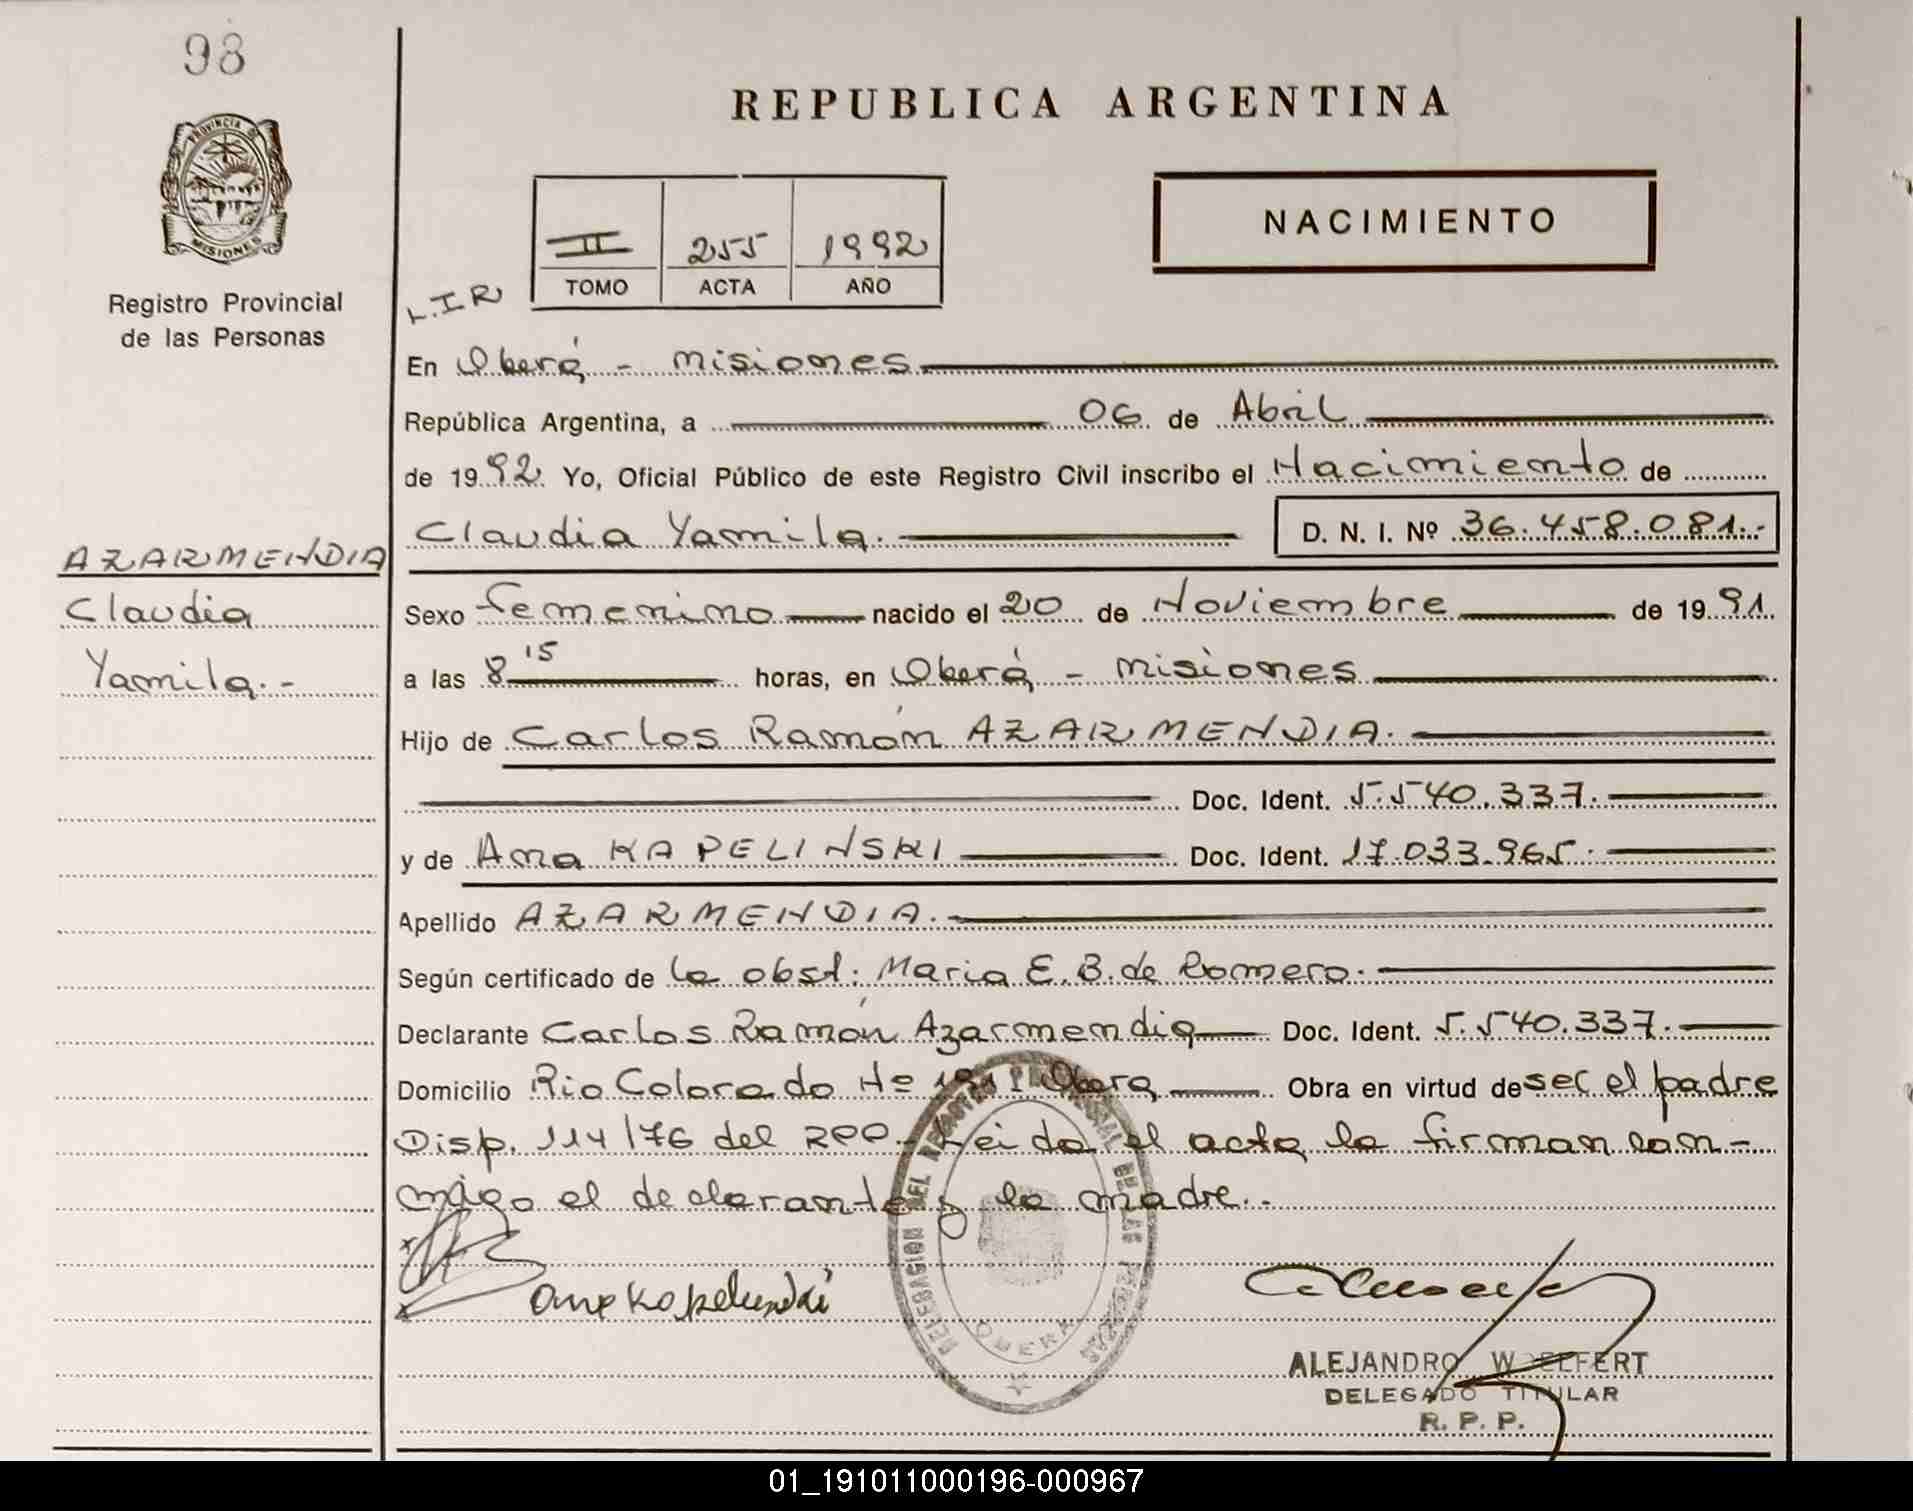 98
REPUBLICA ARGENTINA
PROVINCIA DE
MISIONES
Registro Provincial
de las Personas
II 255 1992
TOMO ACTA AÑO
NACIMIENTO
L.I.R
En Oberá - Misiones
República Argentina, a 06 de Abril
de 1992 Yo, Oficial Público de este Registro Civil inscribo el Nacimiento de
Claudia Yamila. D. N. I. Nº 36.458.081.-
AZARMENDIA
Claudia
Yamila.-
Sexo femenino nacido el 20 de Noviembre de 1991.
a las 8 15 horas, en Oberá - Misiones
Hijo de Carlos Ramón AZARMENDIA.
Doc. Ident. 5.540.337.
y de Ana KAPELINSKI Doc. Ident. 17.033.965.
Apellido AZARMENDIA.
Según certificado de la obst: Maria E. B. de Romero.
Declarante Carlos Ramón Azarmendia Doc. Ident. 5.540.337.
Domicilio Rio Colorado Nº 191 Obera Obra en virtud de sec el padre
Disp. 114/76 del RPP. Leida el acta la firman con-
migo el declarante y la madre.-
DELEGACION DEL REGISTRO PROVINCIAL DE LAS PERSONAS
OBERA
Ana Kapelinski
ALEJANDRO WOELFERT
DELEGADO TITULAR
R. P. P.
01_191011000196-000967